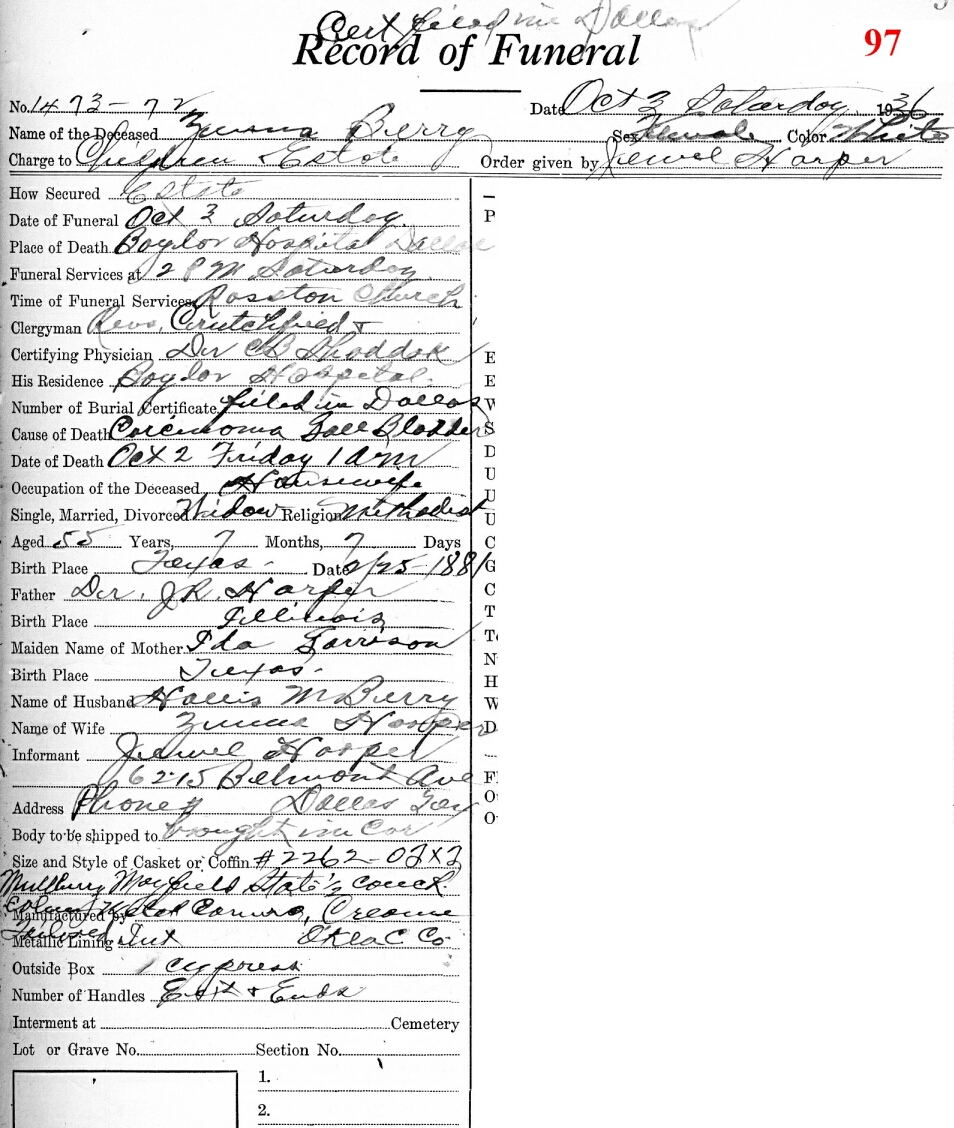 Cert filed in Dallas
Record of Funeral
97
No. 1473-72 Date Oct 3 Saturday 1936
Name of the Deceased Zumma Berry Sex Female Color White
Charge to Children & Estate Order given by Jewel Harper
How Secured Estate
Date of Funeral Oct 3 Saturday
Place of Death Baylor Hospital Dallas
Funeral Services at 2 PM Saturday
Time of Funeral Services Rosston Church
Clergyman Revs. Crutchfield &
Certifying Physician Dr CB
His Residence Baylor Hospital
Number of Burial Certificate filed in Dallas
Cause of Death Carcinoma Gall Bladder
Date of Death Oct 2 Friday 1 am
Occupation of the Deceased Housewife
Single, Married, Divorced Widow Religion Methodist
Aged 55 Years, 7 Months, 7 Days
Birth Place Texas - Date 2/25-1881
Father Dr. J.R. Harper
Birth Place Illinois
Maiden Name of Mother Ida Garrison
Birth Place Texas -
Name of Husband Hollis M Berry
Name of Wife Zumma Harper
Informant Jewel Harper
6215 Belmont Ave
Address Phone # Dallas Tex
Body to be shipped to brought in Car
Size and Style of Casket or Coffin #2262-
Mullberry Mayfield State's couch
Manufactured by Metal Creame
Metallic Lining Int Okla C Co
Outside Box 1 cypress
Number of Handles Ext & Ends
Interment at Cemetery
Lot or Grave No. Section No.
1.
2.
P
E
E
W
S
D
U
U
U
C
G
C
T
To
N
H
W
D
F
O
O